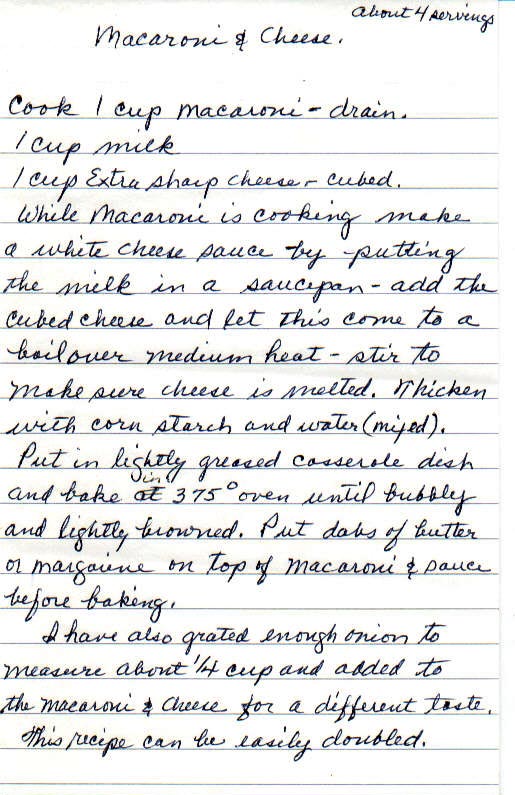 about 4 servings
Macaroni & Cheese.
Cook 1 cup macaroni - drain.
1 cup milk
1 cup Extra sharp cheese - cubed.
While Macaroni is cooking make
a white cheese sauce by putting
the milk in a saucepan - add the
cubed cheese and let this come to a
boil over medium heat - stir to
make sure cheese is melted. Thicken
with corn starch and water (mixed).
Put in lightly greased casserole dish
and bake in 375° oven until bubbly
and lightly browned. Put dabs of butter
or margaine on top of macaroni & sauce
before baking.
I have also grated enough onion to
measure about 1/4 cup and added to
the macaroni & cheese for a different taste.
This recipe can be easily doubled.